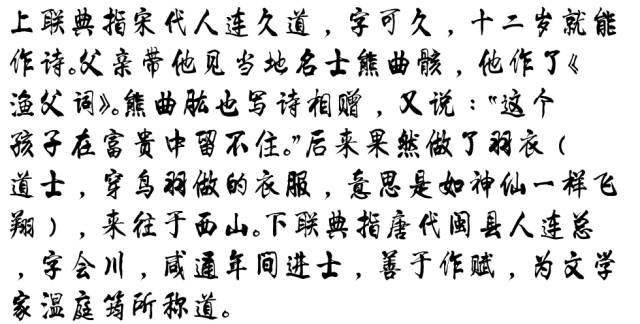 上联典指宋代人连久道，字可久，十二岁就能
作诗。父亲带他见当地名士熊曲骸，他作了《
渔父词》。熊曲肱也写诗相赠，又说：“这个
孩子在富贵中留不住。”后来果然做了羽衣（
道士，穿鸟羽做的衣服，意思是如神仙一样飞
翔），来往于西山。下联典指唐代闽县人连总
，字会川，咸通年间进士，善于作赋，为文学
家温庭筠所称道。